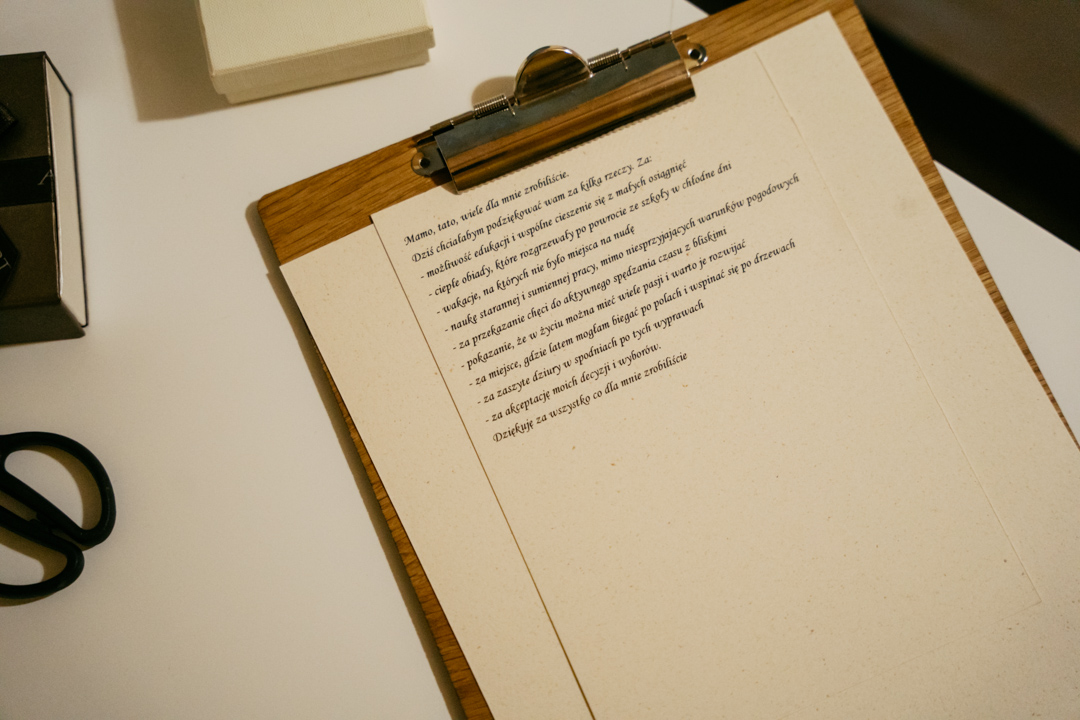 Mamo, tato, wiele dla mnie zrobiliście.
Dziś chciałabym podziękować wam za kilka rzeczy. Za:
- możliwość edukacji i wspólne cieszenie się z małych osiągnięć
- ciepłe obiady, które rozgrzewały po powrocie ze szkoły w chłodne dni
- wakacje, na których nie było miejsca na nudę
- naukę starannej i sumiennej pracy, mimo niesprzyjających warunków pogodowych
- za przekazanie chęci do aktywnego spędzania czasu z bliskimi
- pokazanie, że w życiu można mieć wiele pasji i warto je rozwijać
- za miejsce, gdzie latem mogłam biegać po polach i wspinać się po drzewach
- za zaszyte dziury w spodniach po tych wyprawach
- za akceptację moich decyzji i wyborów.
Dziękuję za wszystko co dla mnie zrobiliście